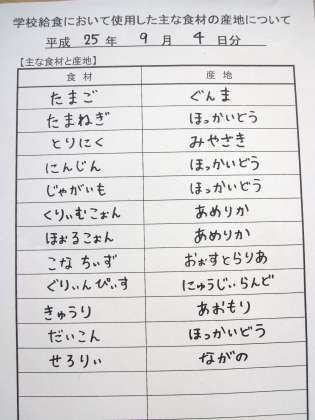 学校給食において使用した主な食材の産地について
平成 25 年 9 月 4 日分
【主な食材と産地】
食材 産地
たまご ぐんま
たまねぎ ほっかいどう
とりにく みやざき
にんじん ほっかいどう
じゃがいも ほっかいどう
くりぃむこぉん あめりか
ほぉるこぉん あめりか
こなちぃず おぉすとらりあ
ぐりぃんぴぃす にゅうじぃらんど
きゅうり あおもり
だいこん ほっかいどう
せろりぃ ながの